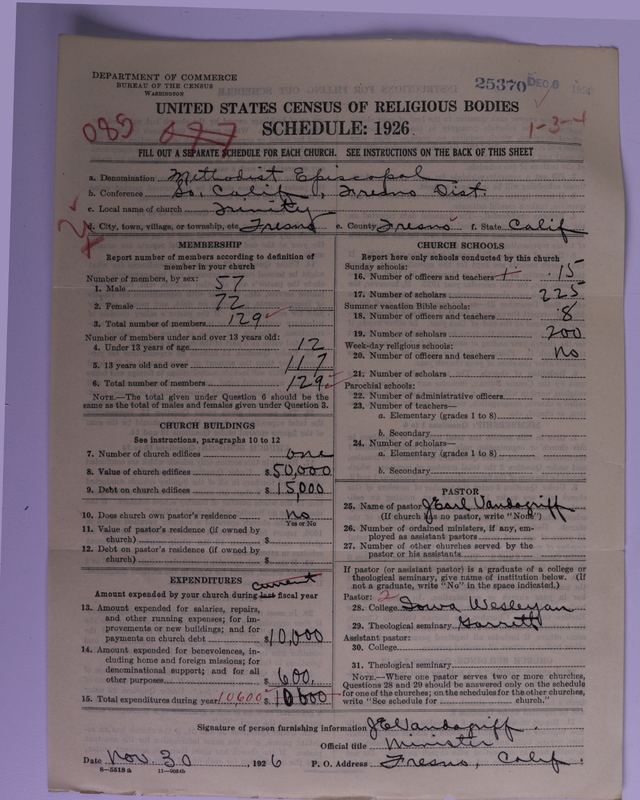 DEPARTMENT OF COMMERCE
BUREAU OF THE CENSUS
WASHINGTON
25370 DEC 6
UNITED STATES CENSUS OF RELIGIOUS BODIES
SCHEDULE: 1926
085 677
1-3-4
FILL OUT A SEPARATE SCHEDULE FOR EACH CHURCH. SEE INSTRUCTIONS ON THE BACK OF THIS SHEET
a. Denomination Methodist Episcopal
b. Conference So. Calif, Fresno Dist.
c. Local name of church Trinity
d. City, town, village, or township, etc Fresno e. County Fresno f. State Calif
MEMBERSHIP
Report number of members according to definition of
member in your church
Number of members, by sex:
1. Male 57
2. Female 72
3. Total number of members 129
Number of members under and over 13 years old:
4. Under 13 years of age 12
5. 13 years old and over 117
6. Total number of members 129
NOTE.—The total given under Question 6 should be the
same as the total of males and females given under Question 3.
CHURCH BUILDINGS
See instructions, paragraphs 10 to 12
7. Number of church edifices one
8. Value of church edifices $50,000
9. Debt on church edifices $15,000
10. Does church own pastor's residence no
Yes or No
11. Value of pastor's residence (if owned by
church) $
12. Debt on pastor's residence (if owned by
church) $
EXPENDITURES
current
Amount expended by your church during last fiscal year
13. Amount expended for salaries, repairs,
and other running expenses; for im-
provements or new buildings; and for
payments on church debt $10,000
14. Amount expended for benevolences, in-
cluding home and foreign missions; for
denominational support; and for all
other purposes $600.
15. Total expenditures during year 10600 $10600
CHURCH SCHOOLS
Report here only schools conducted by this church
Sunday schools:
16. Number of officers and teachers 15
17. Number of scholars 225
Summer vacation Bible schools:
18. Number of officers and teachers 8
19. Number of scholars 200
Week-day religious schools:
20. Number of officers and teachers no
21. Number of scholars
Parochial schools:
22. Number of administrative officers
23. Number of teachers—
a. Elementary (grades 1 to 8)
b. Secondary
24. Number of scholars—
a. Elementary (grades 1 to 8)
b. Secondary
PASTOR
25. Name of pastor J Earl Vandagriff
(If church has no pastor, write "None")
26. Number of ordained ministers, if any, em-
ployed as assistant pastors
27. Number of other churches served by the
pastor or his assistants
If pastor (or assistant pastor) is a graduate of a college or
theological seminary, give name of institution below. (If
not a graduate, write "No" in the space indicated.)
Pastor: 2
28. College Iowa Wesleyan
29. Theological seminary Garrett
Assistant pastor:
30. College
31. Theological seminary
NOTE.—Where one pastor serves two or more churches,
Questions 28 and 29 should be answered only on the schedule
for one of the churches; on the schedules for the other churches,
write "See schedule for church."
Signature of person furnishing information J E Vandagriff.
Official title Minister
Date Nov. 30, 1926 P. O. Address Fresno, Calif.
8-5518 a 11-9034b